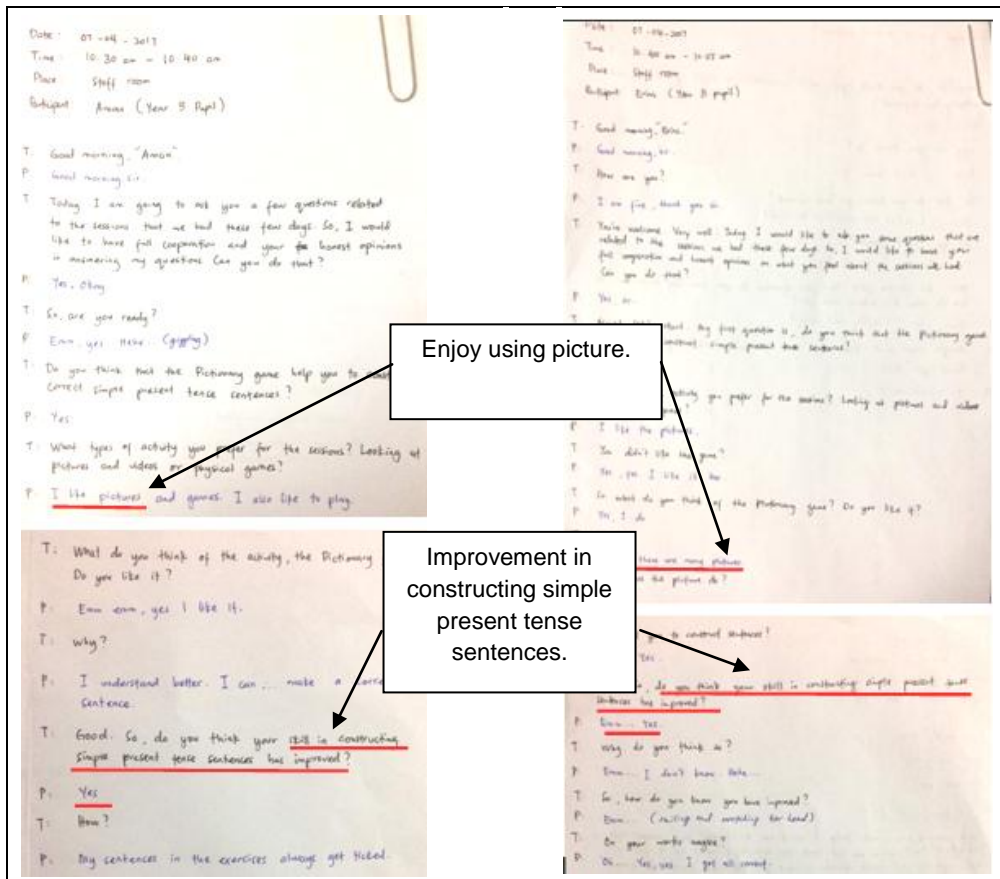 Date : 07-04-2017
Time : 10.30 am - 10.40 am
Place Staff room
Participant Aman (Year 3 Pupil)
T: Good morning, "Aman"
P Good morning sir.
T Today I am going to ask you a few questions related
to the sessions that we had these few days. So, I would
like to have full cooperation and your honest opinions
in answering my questions Can you do that?
P: Yes, Okay
T: So, are you ready?
P Emm, yes. Hehe.. (giggling)
T: Do you think that the Pictionary game help you to
correct simple present tense sentences?
P: Yes
T: What types of activity you prefer for the sessions? Looking at
pictures and videos or physical games?
P: I like pictures and games. I also like to play.
T: What do you think of the activity, the Pictionary
Do you like it?
P: Emm emm, yes I like it.
T: Why?
P: I understand better. I can ... make a
sentence.
T: Good. So, do you think your skill in constructing
simple present tense sentences has improved?
P: Yes
T: How?
P: My sentences in the exercises always get ticked.
Enjoy using picture.
Improvement in
constructing simple
present tense
sentences.
Date : 07-04-2017
Time
Place Staff room
Participant (Year 3 pupil)
T: Good morning,
P: Good morning, sir
T How are you?
P: I am fine, thank you sir.
T: You're welcome. Very well. Today I would like to ask you some question that are
related to the sessions we had these few days So, I would like to have your
full cooperation and honest opinions on what you feel about the sessions we had
Can you do that?
P Yes, sir.
start. My first question is, do you think that the Pictionary game
construct simple present tense sentences?
activity you prefer for the sessions? Looking at pictures and videos
P I like the pictures.
T You didn't like the game?
P Yes, yes I like it
T So what do you think of the Pictionary game? Do you like it?
P Yes, I do
there are many pictures
the picture do?
to construct sentences?
Yes.
do you think your skill in constructing simple present tense
sentences has improved?
P: Emm... Yes.
T Why do you think so?
P Emm... I don't know. Hehe...
T: So, how do you know you have improved?
P Emm... (smiling and her head)
T: On your works maybe?
P Oh... Yes, yes. I got all correct.